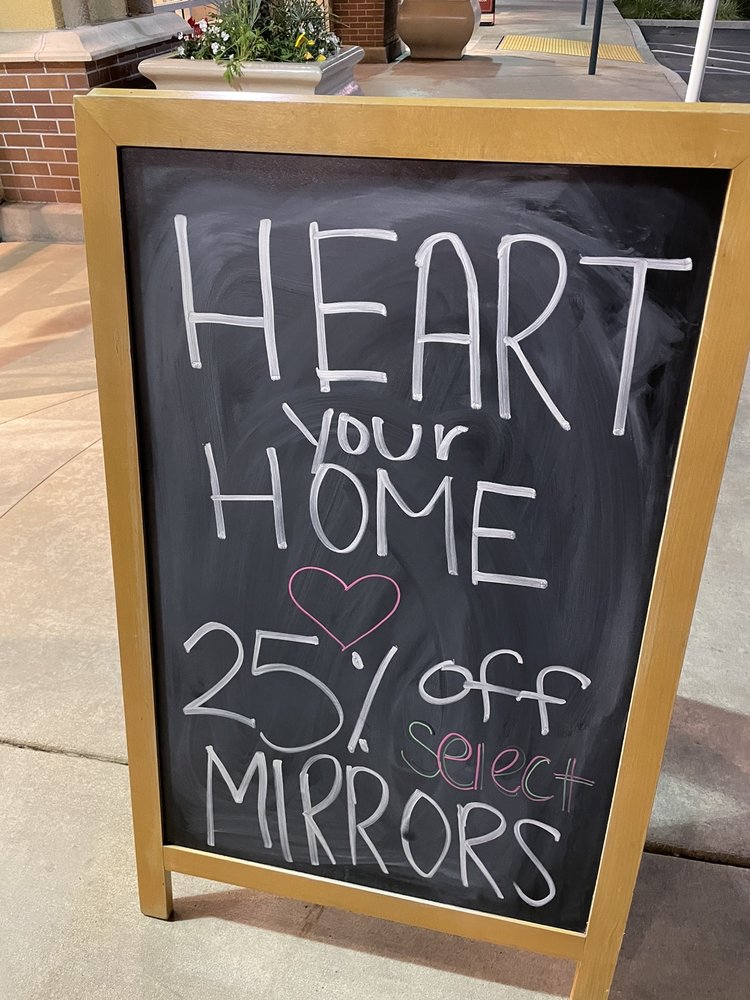 HEART
your
HOME
25% off
select
MIRRORS